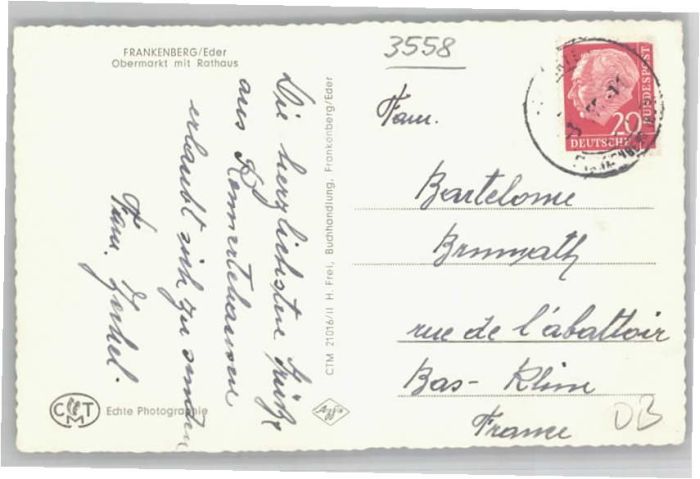 FRANKENBERG/Eder
Obermarkt mit Rathaus
Die herzlichsten Grüße
aus Rennertehausen
erlaubt sich zu senden
Fam.
CTM
Echte Photographie
CTM 21016/II H. Frei, Buchhandlung, Frankenberg/Eder
Agfa
3558
BUNDESPOST
20
DEUTSCHE
Fam.
Bartelome
Brumath
rue de l'abattoir
Bas-Rhin
France
DB